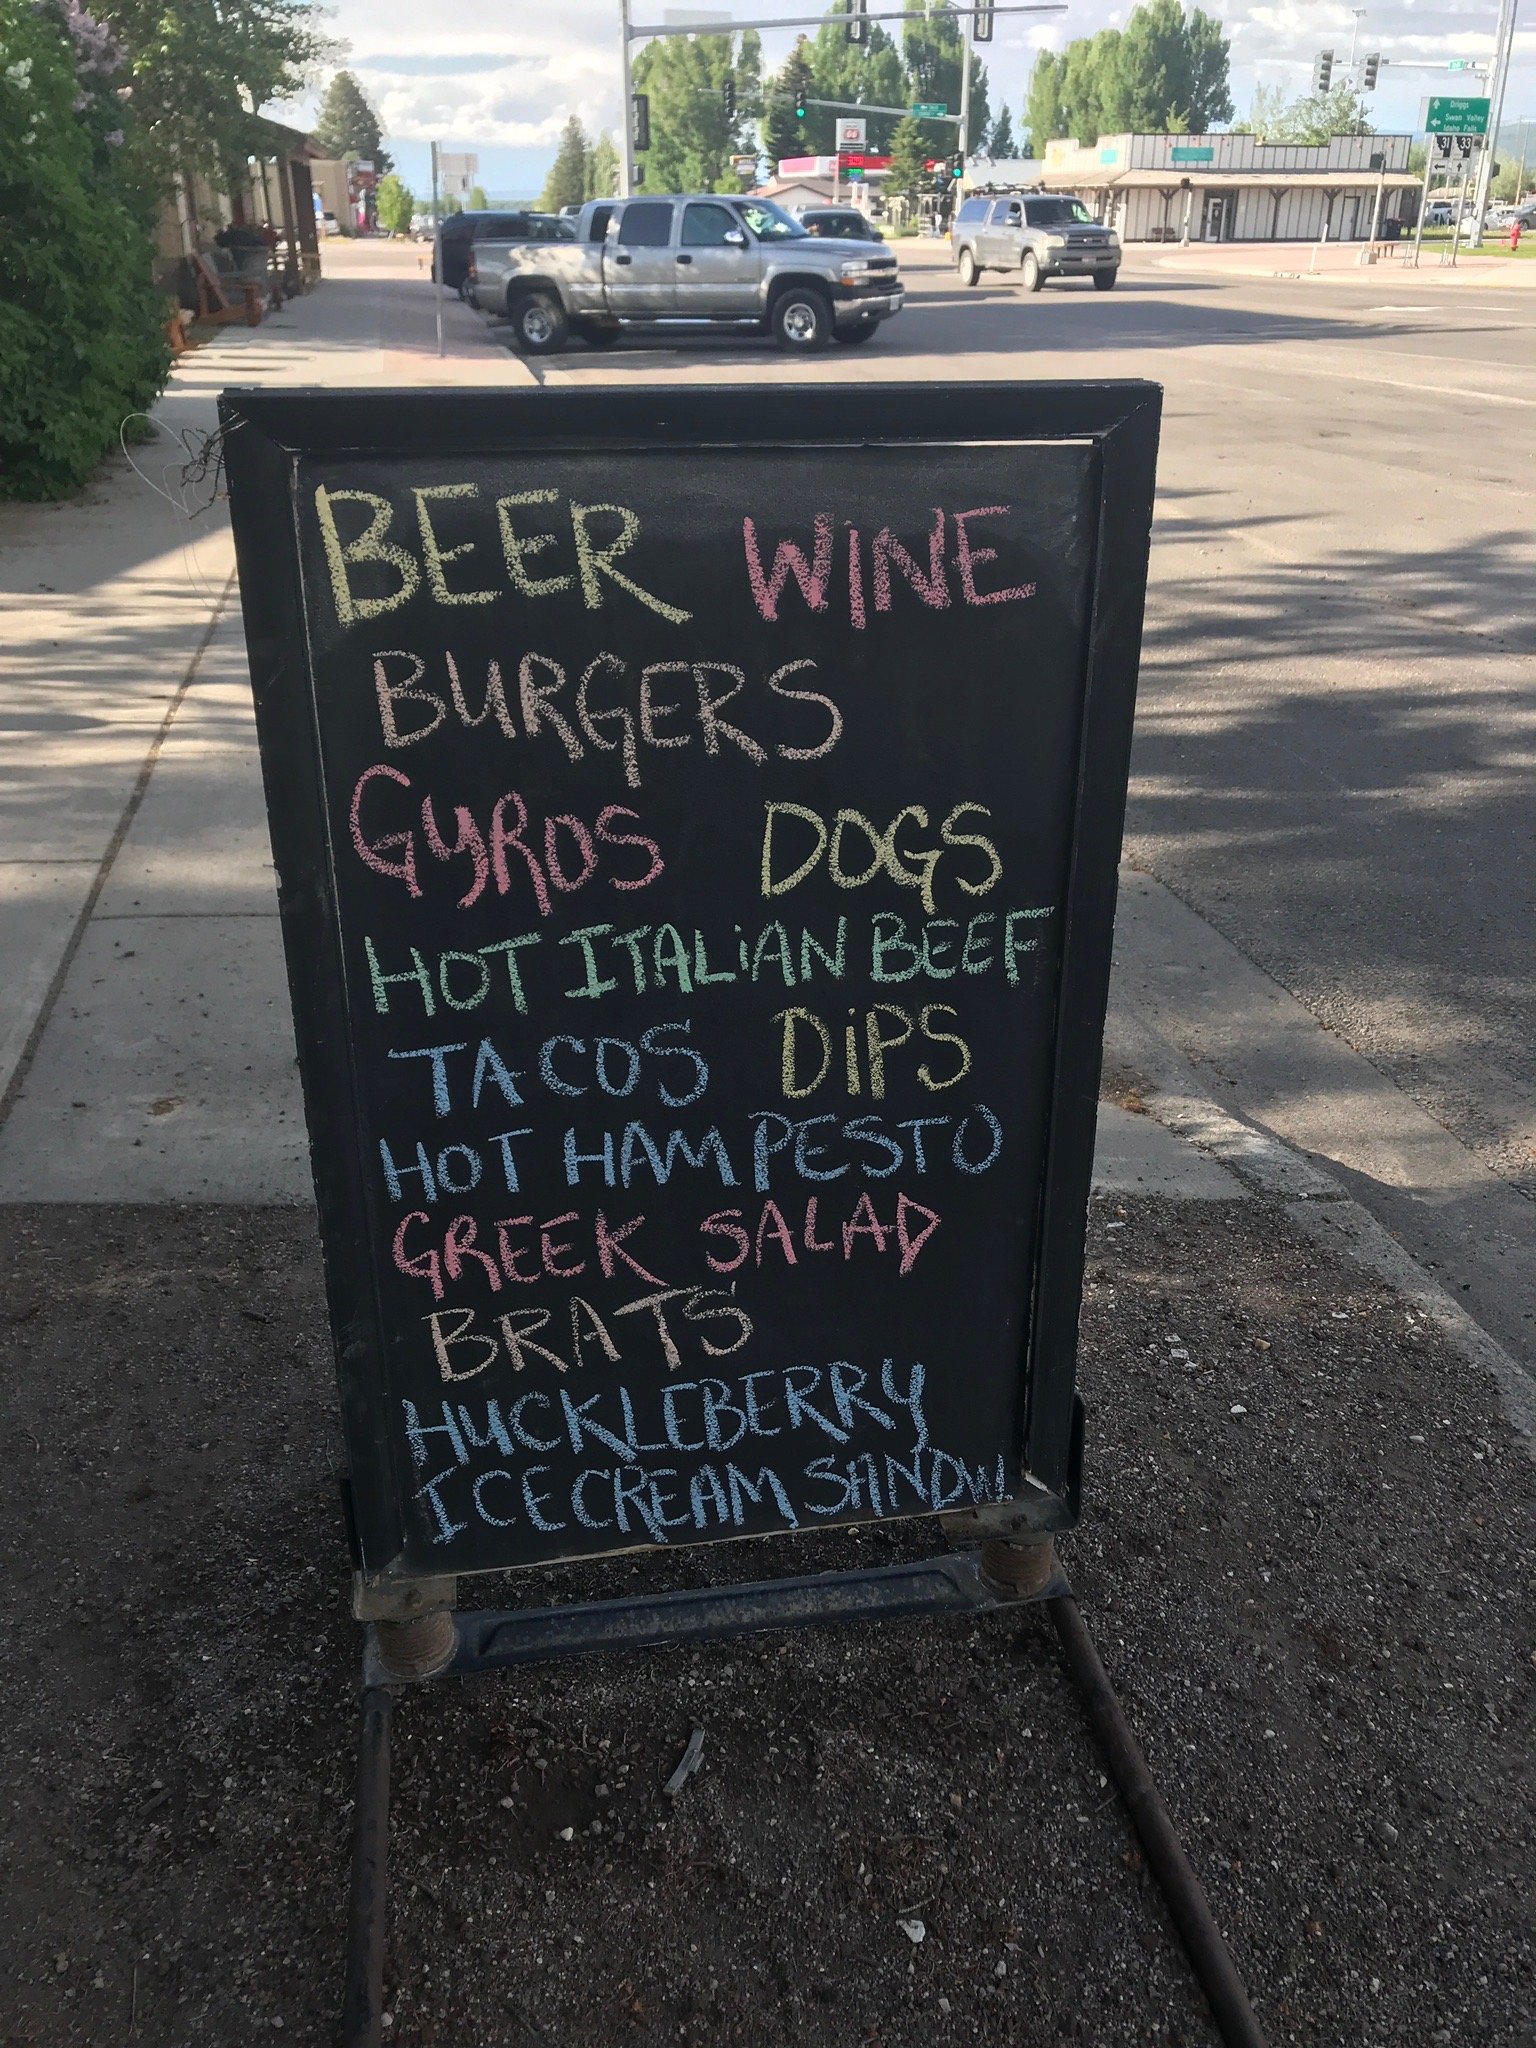 BEER WINE
BURGERS
GYROS DOGS
HOT ITALIAN BEEF
TACOS DIPS
HOT HAM PESTO
GREEK SALAD
BRATS
HUCKLEBERRY
ICE CREAM SANDW
Driggs
Swan Valley
Idaho Falls
31 33